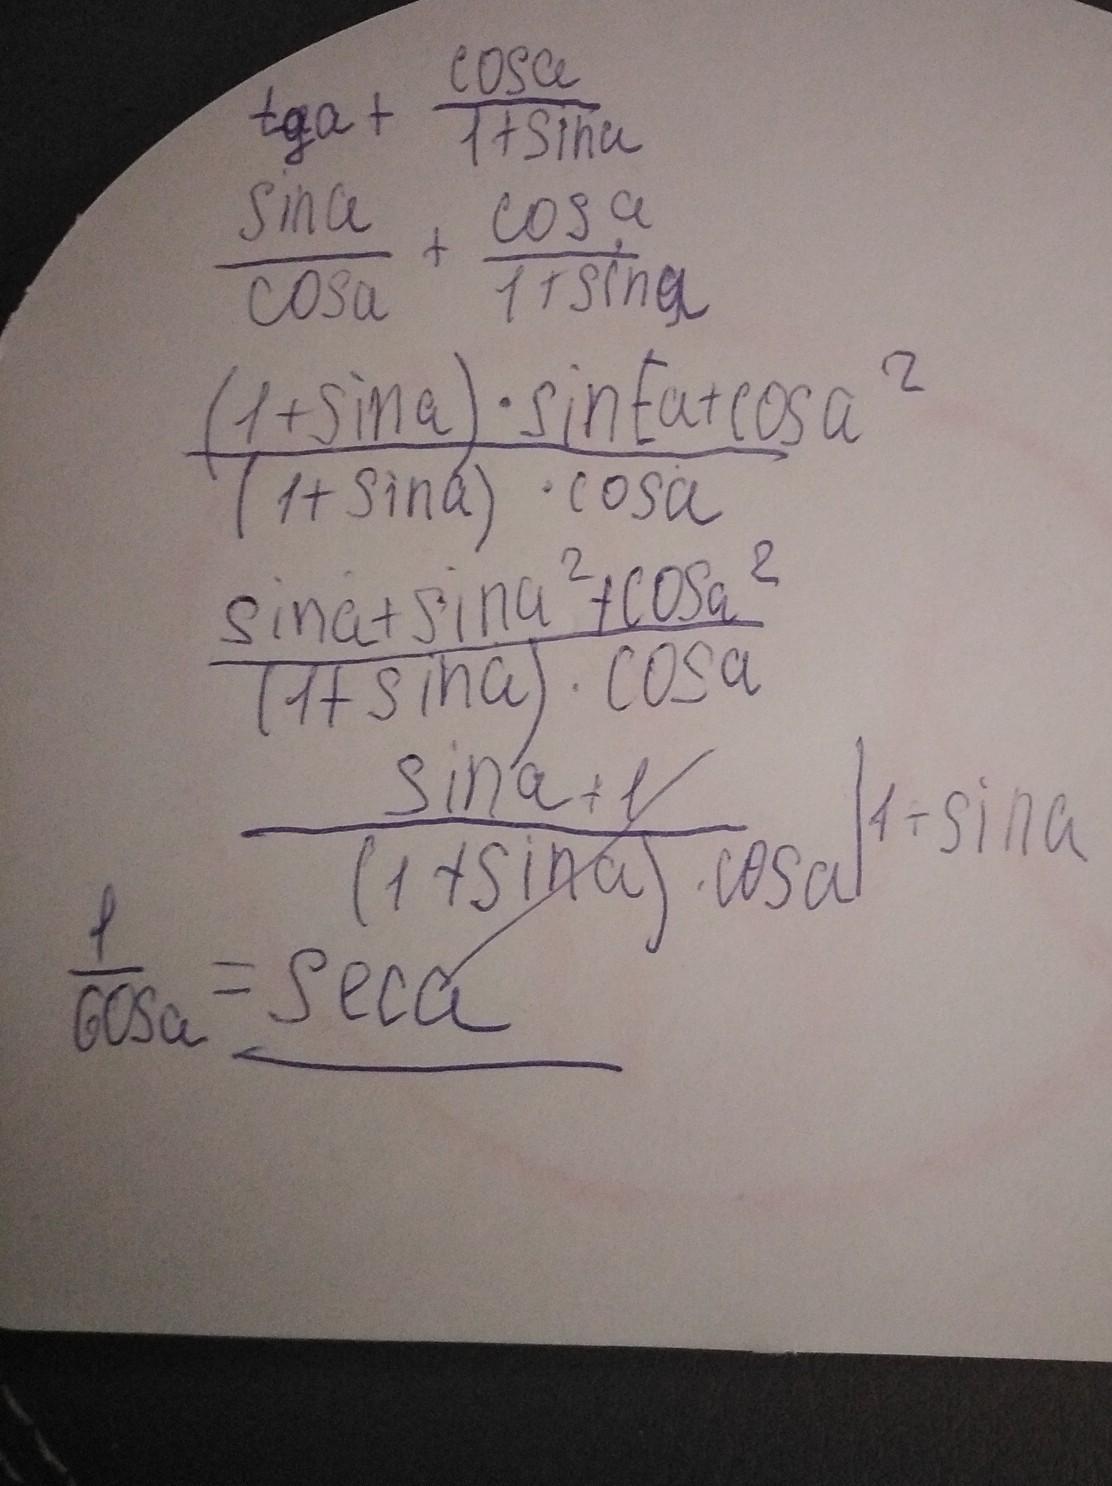 tga + cosa/1+sina
sina/cosa + cosa/1+sina
(1+sina)·sin[a+cosa²/(1+sina)·cosa
sina+sina²+cosa²/(1+sina)·cosa
sina+1/(1+sina)·cosa | 1+sina
1/cosa = seca